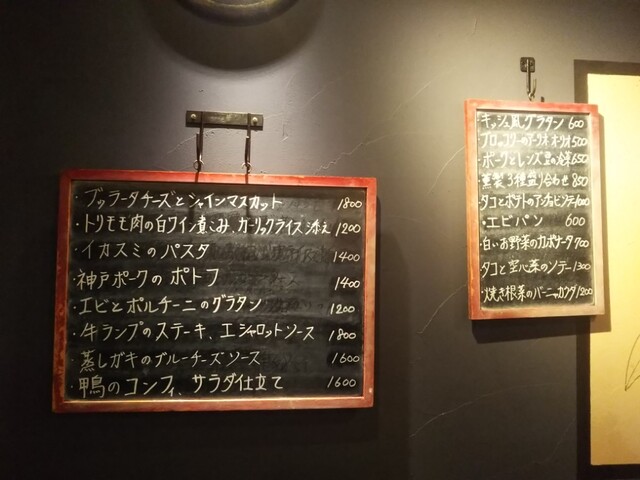 ・ブッラータチーズとシャインマスカット 1800
・トリモモ肉の白ワイン煮こみ、ガーリックライス添え 1200
・イカスミのパスタ 1400
・神戸ポークのポトフ 1400
・エビとポルチーニのグラタン 1200
・牛ランプのステーキ、エシャロットソース 1800
・蒸しガキのブルーチーズソース 1600
・甲鳥のコンフィ、サラダ仕立て 1600
・キッシュ風グラタン 600
・ブロッコリーのアーリオオーリオ 500
・ポークとレンズ豆の 650
・燻製3種盛り合わせ 850
・タコとポテトのアンチョビソテー 600
・エビパン 600
・白いお野菜のカポナータ 700
・タコと空心菜のソテー 1300
・焼き根菜のバーニャカウダ 1200